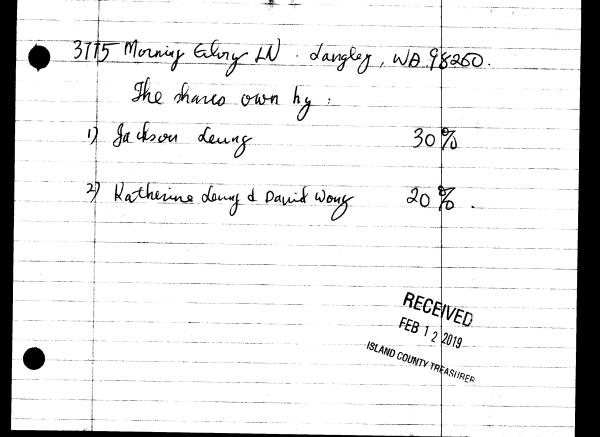 3775 Morning Glory LN. Langley, WA 98260.
The shares own by :
1) Jackson Leung 30%
2) Katherine Leung & David Wong 20%.
RECEIVED
FEB 12 2019
ISLAND COUNTY TREASURER